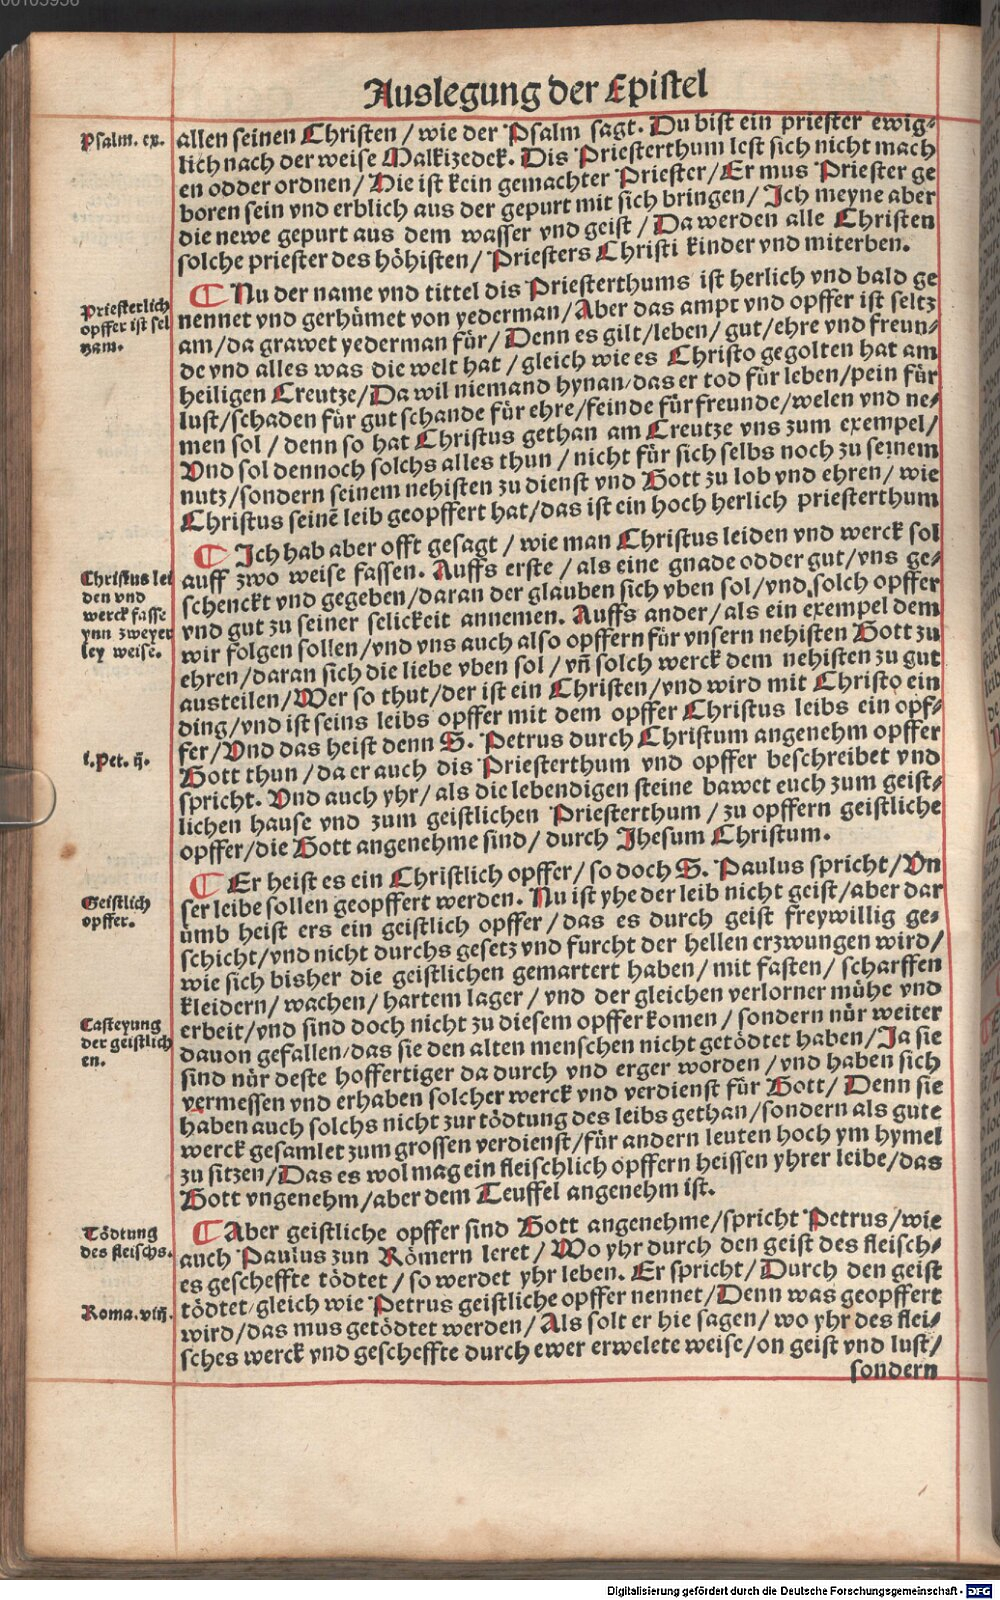 Auslegung der Epistel
Psalm. cx.
allen seinen Christen / wie der Psalm sagt. Du bist ein priester ewig-
lich nach der weise Malkizedek. Dis Priesterthum lest sich nicht mach
en odder ordnen / Hie ist kein gemachter Priester / Er mus Priester ge
boren sein vnd erblich aus der gepurt mit sich bringen / Ich meyne aber
die newe gepurt aus dem wasser vnd geist / Da werden alle Christen
solche priester des höhisten / Priesters Christi kinder vnd miterben.
Priesterlich
opffer ist sel
tzam.
¶ Nu der name vnd tittel dis Priesterthums ist herlich vnd bald ge
nennet vnd gerhümet von yederman / Aber das ampt vnd opffer ist seltz
am / da grawet yederman für / Denn es gilt / leben / gut / ehre vnd freun-
de vnd alles was die welt hat / gleich wie es Christo gegolten hat am
heiligen Creutze / Da wil niemand hynan / das er tod für leben / pein für
lust / schaden für gut schande für ehre / feinde für freunde / welen vnd ne-
men sol / denn so hat Christus gethan am Creutze vns zum exempel /
Vnd sol dennoch solchs alles thun / nicht für sich selbs noch zu seinem
nutz / sondern seinem nehisten zu dienst vnd Gott zu lob vnd ehren / wie
Christus seinē leib geopffert hat / das ist ein hoch herlich priesterthum
Christus lei
den vnd
werck fasse
ynn zweyer
ley weise.
¶ Ich hab aber offt gesagt / wie man Christus leiden vnd werck sol
auff zwo weise fassen. Auffs erste / als eine gnade odder gut / vns ge-
schenckt vnd gegeben / daran der glauben sich vben sol / vnd solch opffer
vnd gut zu seiner selickeit annemen. Auffs ander / als ein exempel dem
wir folgen sollen / vnd vns auch also opffern für vnsern nehisten Gott zu
ehren / daran sich die liebe vben sol / vñ solch werck dem nehisten zu gut
austeilen / Wer so thut / der ist ein Christen / vnd wird mit Christo ein
ding / vnd ist seins leibs opffer mit dem opffer Christus leibs ein opf-
fer / Vnd das heist denn S. Petrus durch Christum angenehm opffer
i. Pet. ij.
Gott thun / da er auch dis Priesterthum vnd opffer beschreibet vnd
spricht. Vnd auch yhr / als die lebendigen steine bawet euch zum geist-
lichen hause vnd zum geistlichen Priesterthum / zu opffern geistliche
opffer / die Gott angenehme sind / durch Jhesum Christum.
Geistlich
opffer.
¶ Er heist es ein Christlich opffer / so doch S. Paulus spricht / Vn
ser leibe sollen geopffert werden. Nu ist yhe der leib nicht geist / aber dar
ümb heist ers ein geistlich opffer / das es durch geist freywillig ge-
schicht / vnd nicht durchs gesetz vnd furcht der hellen erzwungen wird /
wie sich bisher die geistlichen gemartert haben / mit fasten / scharffen
kleidern / wachen / hartem lager / vnd der gleichen verlorner mühe vnd
Casteyung
der geistlich
en.
erbeit / vnd sind doch nicht zu diesem opffer komen / sondern nür weiter
dauon gefallen / das sie den alten menschen nicht getödtet haben / Ja sie
sind nür deste hoffertiger da durch vnd erger worden / vnd haben sich
vermessen vnd erhaben solcher werck vnd verdienst für Gott / Denn sie
haben auch solchs nicht zur tödtung des leibs gethan / sondern als gute
werck gesamlet zum grossen verdienst / für andern leuten hoch ym hymel
zu sitzen / Das es wol mag ein fleischlich opffern heissen yhrer leibe / das
Gott vngenehm / aber dem Teuffel angenehm ist.
Tödtung
des fleischs.
¶ Aber geistliche opffer sind Gott angenehme / spricht Petrus / wie
auch Paulus zun Römern leret / Wo yhr durch den geist des fleisch-
es gescheffte tödtet / so werdet yhr leben. Er spricht / Durch den geist
Roma. viij.
tödtet / gleich wie Petrus geistliche opffer nennet / Denn was geopffert
wird / das mus getödtet werden / Als solt er hie sagen / wo yhr des flei-
sches werck vnd gescheffte durch ewer erwelete weise / on geist vnd lust /
sondern
Digitalisierung gefördert durch die Deutsche Forschungsgemeinschaft - DFG